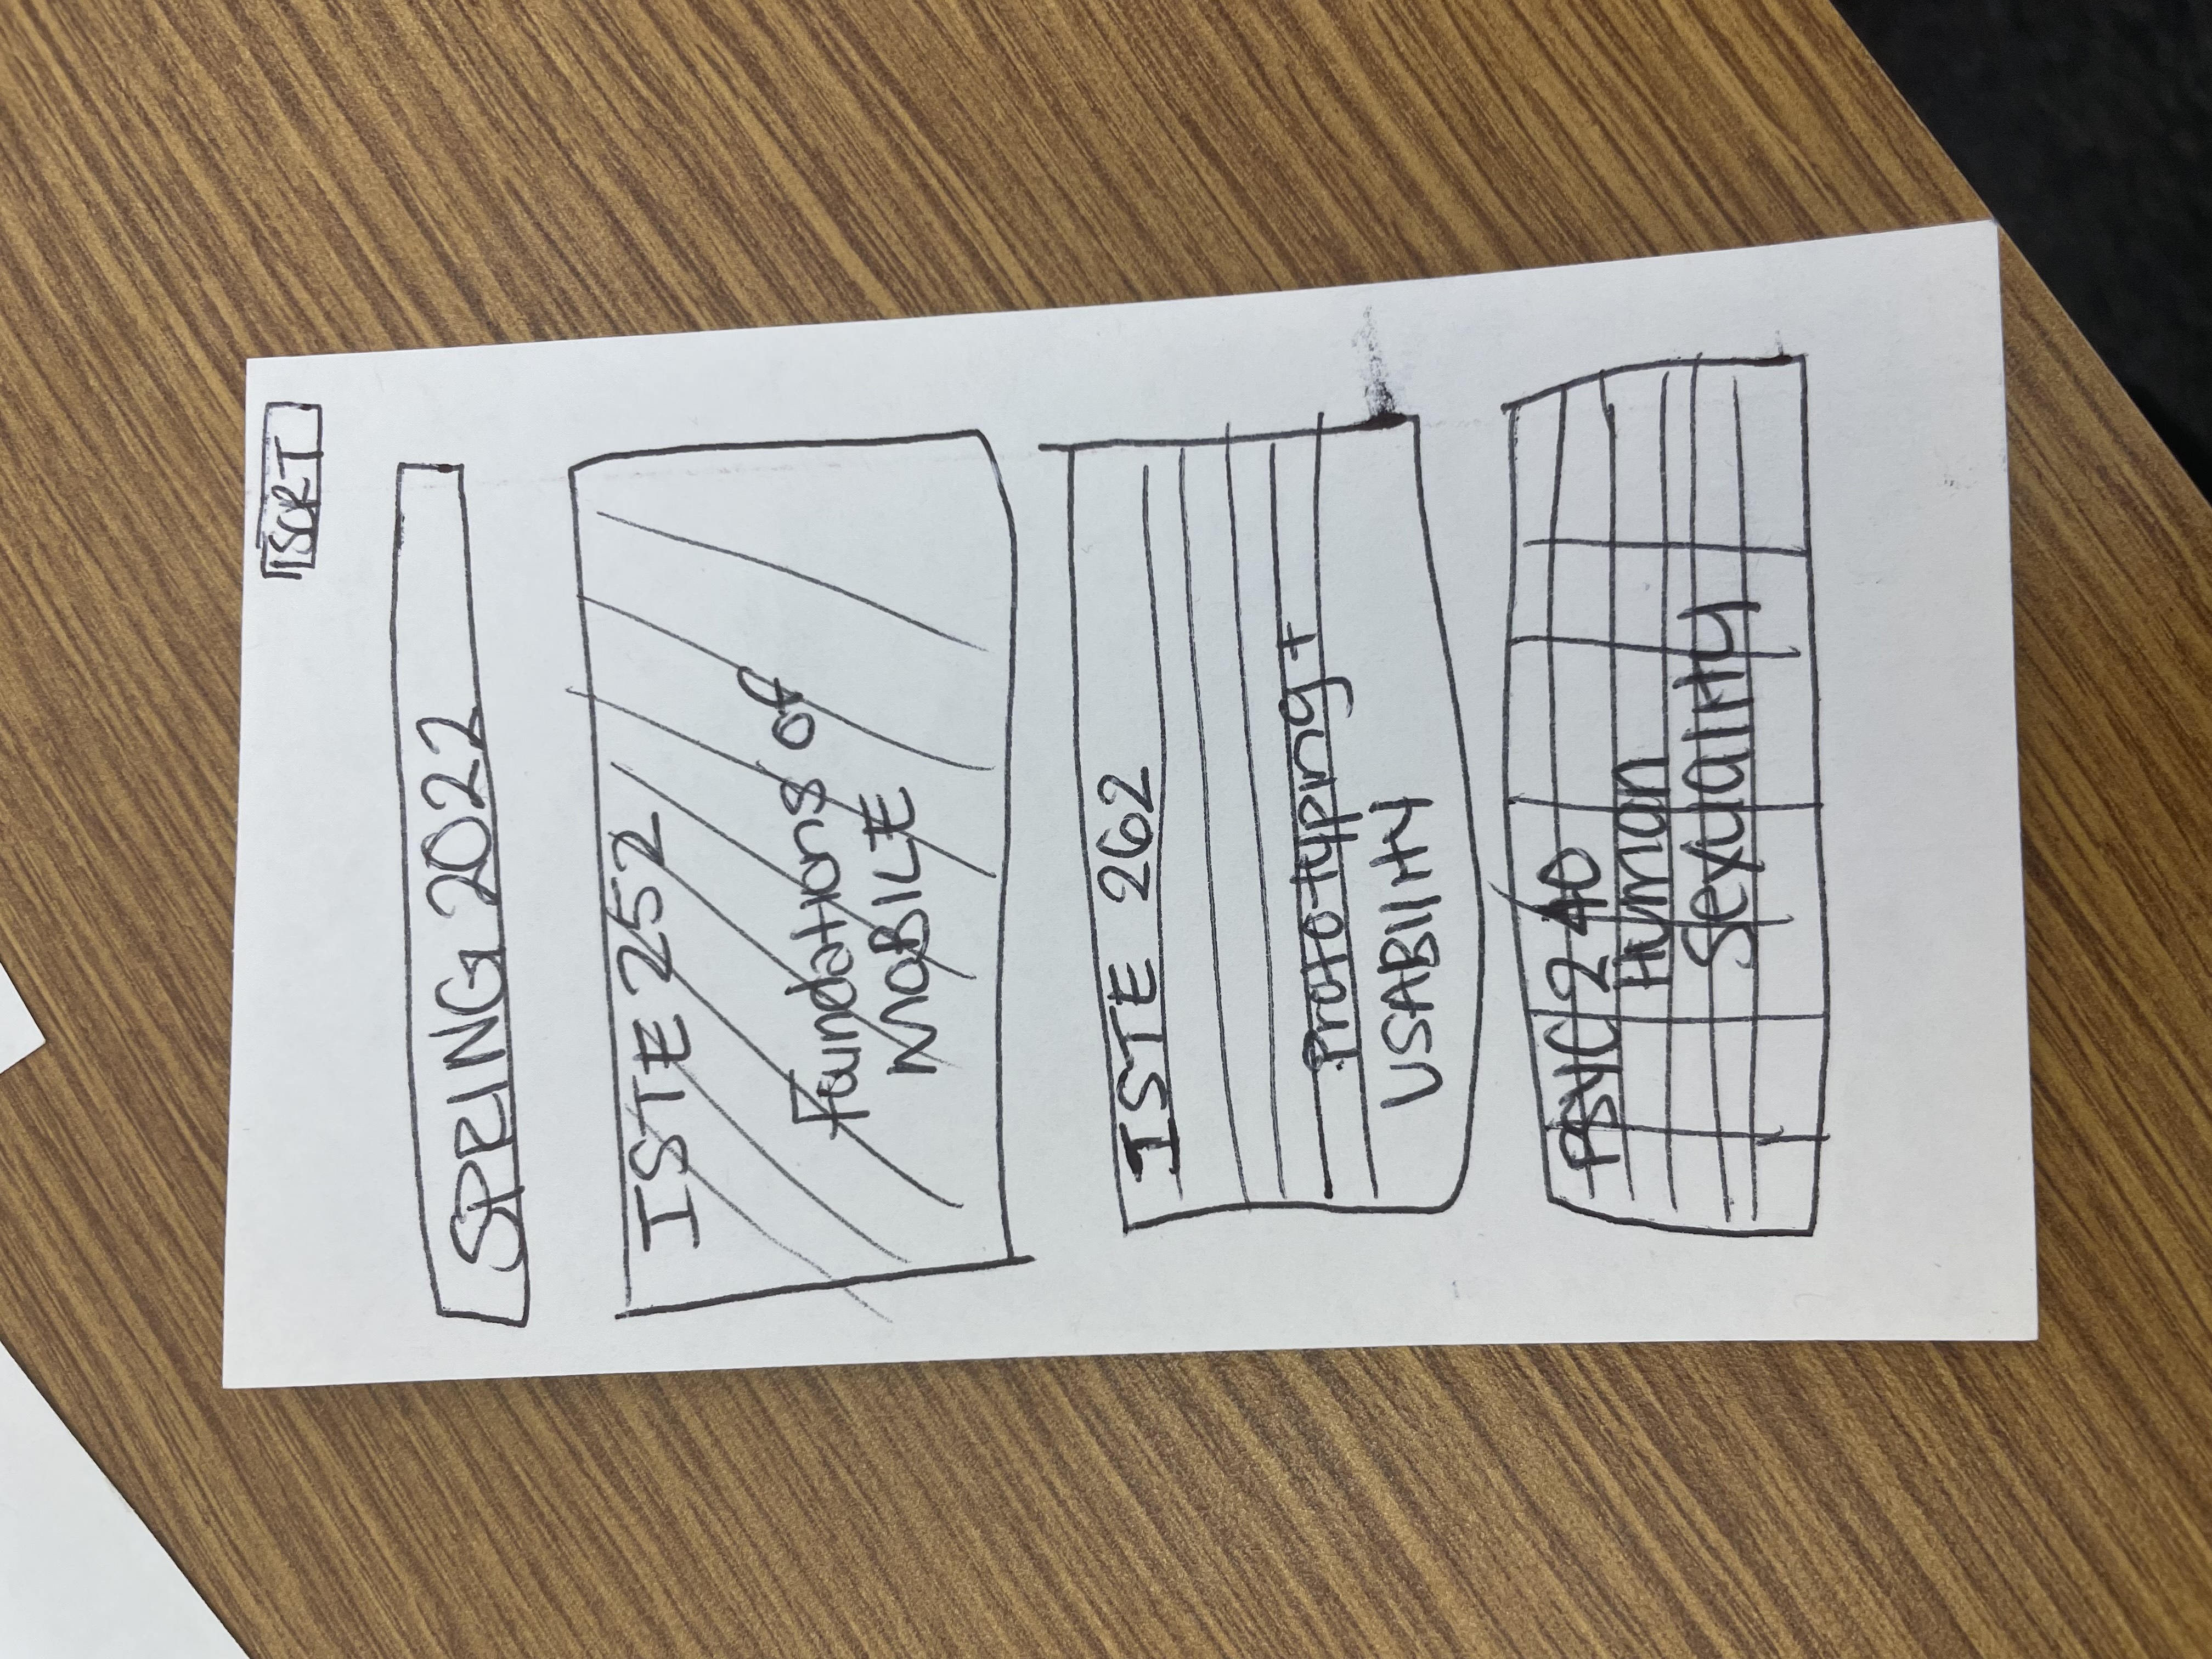 SORT
SPRING 2022
ISTE 252
Foundations of
MOBILE
ISTE 262
Prototyping +
USABIlity
PSYC 240
Human
Sexuality